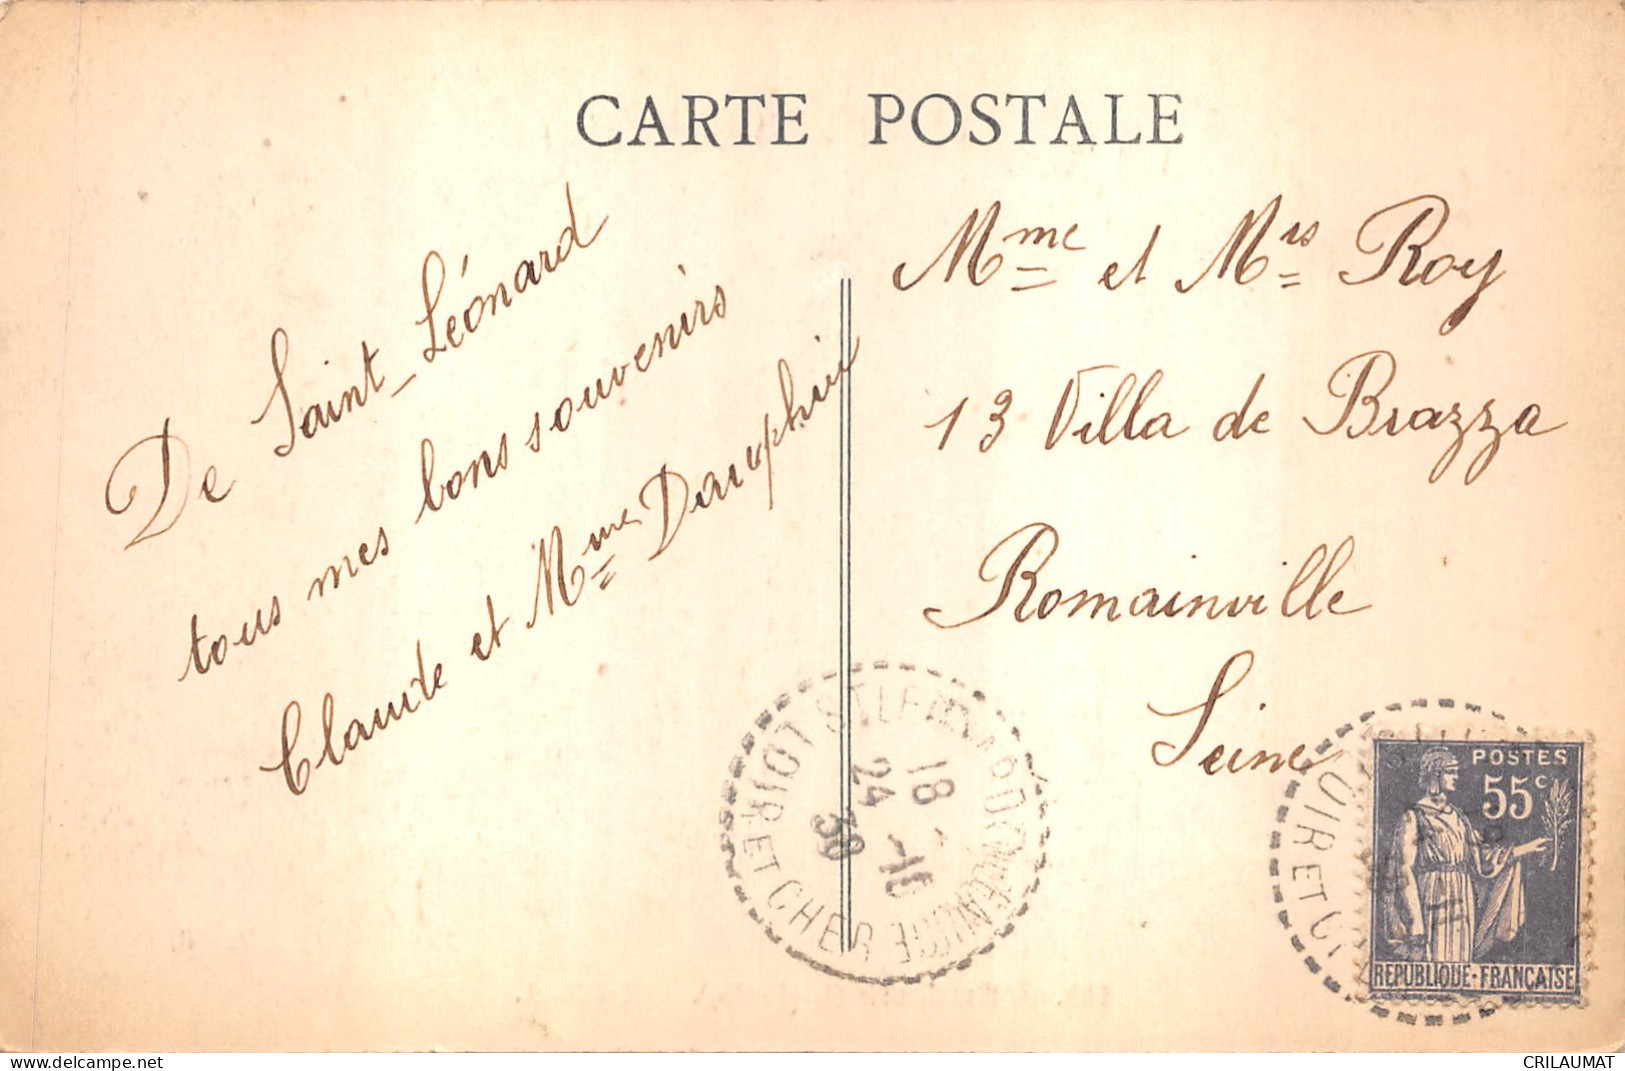 CARTE POSTALE
De Saint-Léonard
tous mes bons souvenirs
Claude et Mme Dauphin
Mme et Mrs Roy
13 Villa de Brazza
Romainville
Seine
LOIR ET CHER
18
24 -10
38
POSTES
55c
RÉPUBLIQUE-FRANÇAISE
LOIR ET CH
delcampe.net
CRILAUMAT